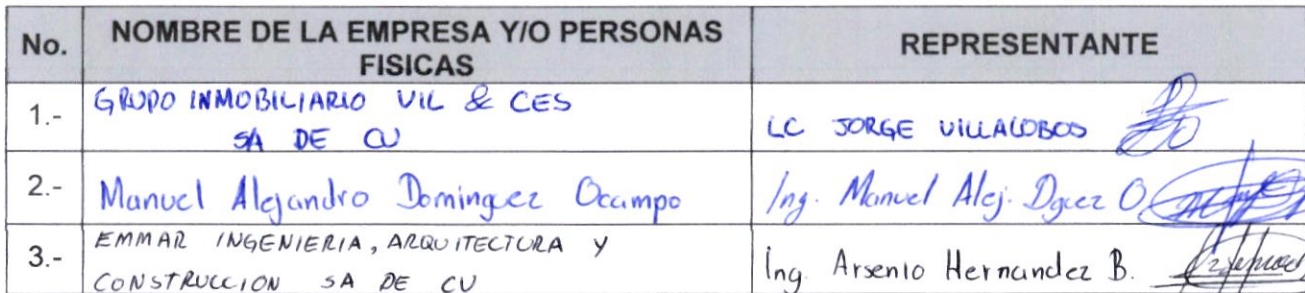 No. NOMBRE DE LA EMPRESA Y/O PERSONAS FISICAS REPRESENTANTE
1.- GRUPO INMOBILIARIO VIL & CES
SA DE CV LC JORGE VILLALOBOS
2.- Manuel Alejandro Dominguez Ocampo Ing. Manuel Alej. Dguez O.
3.- EMMAR INGENIERIA, ARQUITECTURA Y
CONSTRUCCION SA DE CV Ing. Arsenio Hernandez B.